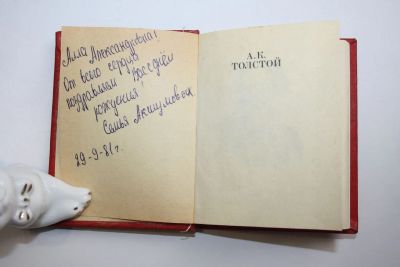 Алла Александровна!
От всего сердца
поздравляем Вас с днём
рождения!
Семья Акишиных
29-9-81г.
А.К.
ТОЛСТОЙ